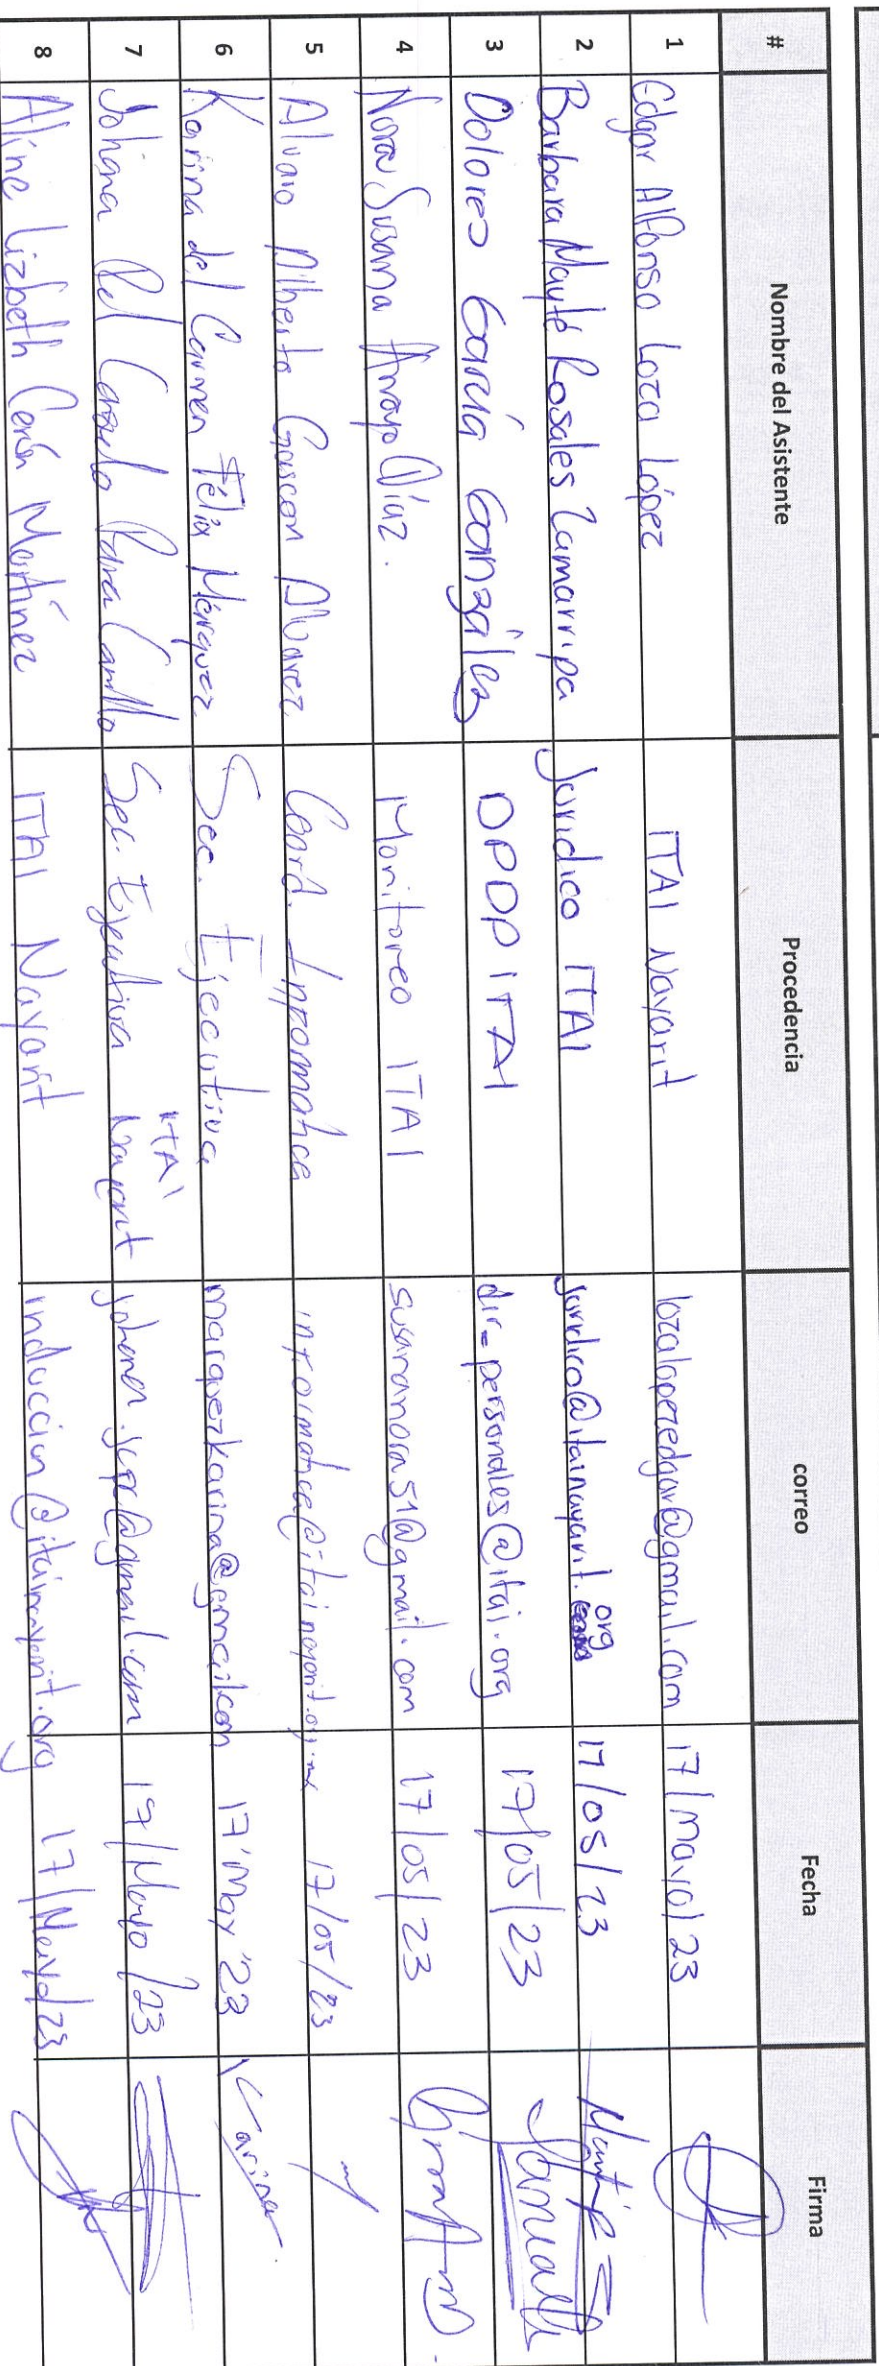 # Nombre del Asistente Procedencia correo Fecha Firma
1 Edgar Alfonso Loza López ITAI Nayarit lozalopezedgar@gmail.com 17/mayo/23
2 Barbara Mayté Rosales Zamarripa Jurídico ITAI juridico@itainayarit.org 17/05/23
3 Dolores García González DPDP ITAI dir_personales@itai.org 17/05/23
4 Nora Susana Arroyo Díaz. Monitoreo ITAI susananora51@gmail.com 17/05/23
5 Alvaro Alberto Gascon Alvarez Coord. Informatica informatica@itainayarit.org.mx 17/05/23
6 Karina del Carmen Félix Márquez Sec. Ejecutiva marquezkarina@gmail.com 17'May'23 Karina
7 Johana Del Parra Carrillo Sec. Ejecutiva ITAI Nayarit 17/Mayo/23
8 Aline Lizbeth Cerón Martínez ITAI Nayarit induccion@itainayarit.org 17/Mayo/23